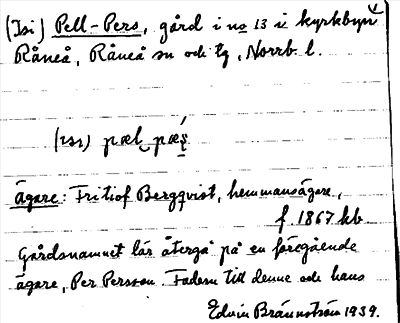 (Isi) Pell-Pers, gård i no 13 i kyrkbyn
Råneå, Råneå sn och tg, Norrb. l.
(ısı) pæl pæṣ́
ägare: Fritiof Bergqvist, hemmansägare,
f. 1867 kb.
Gårdsnamnet lär återgå på en föregående
ägare, Per Persson. Fadern till denne och hans
Edvin Brännström 1939.